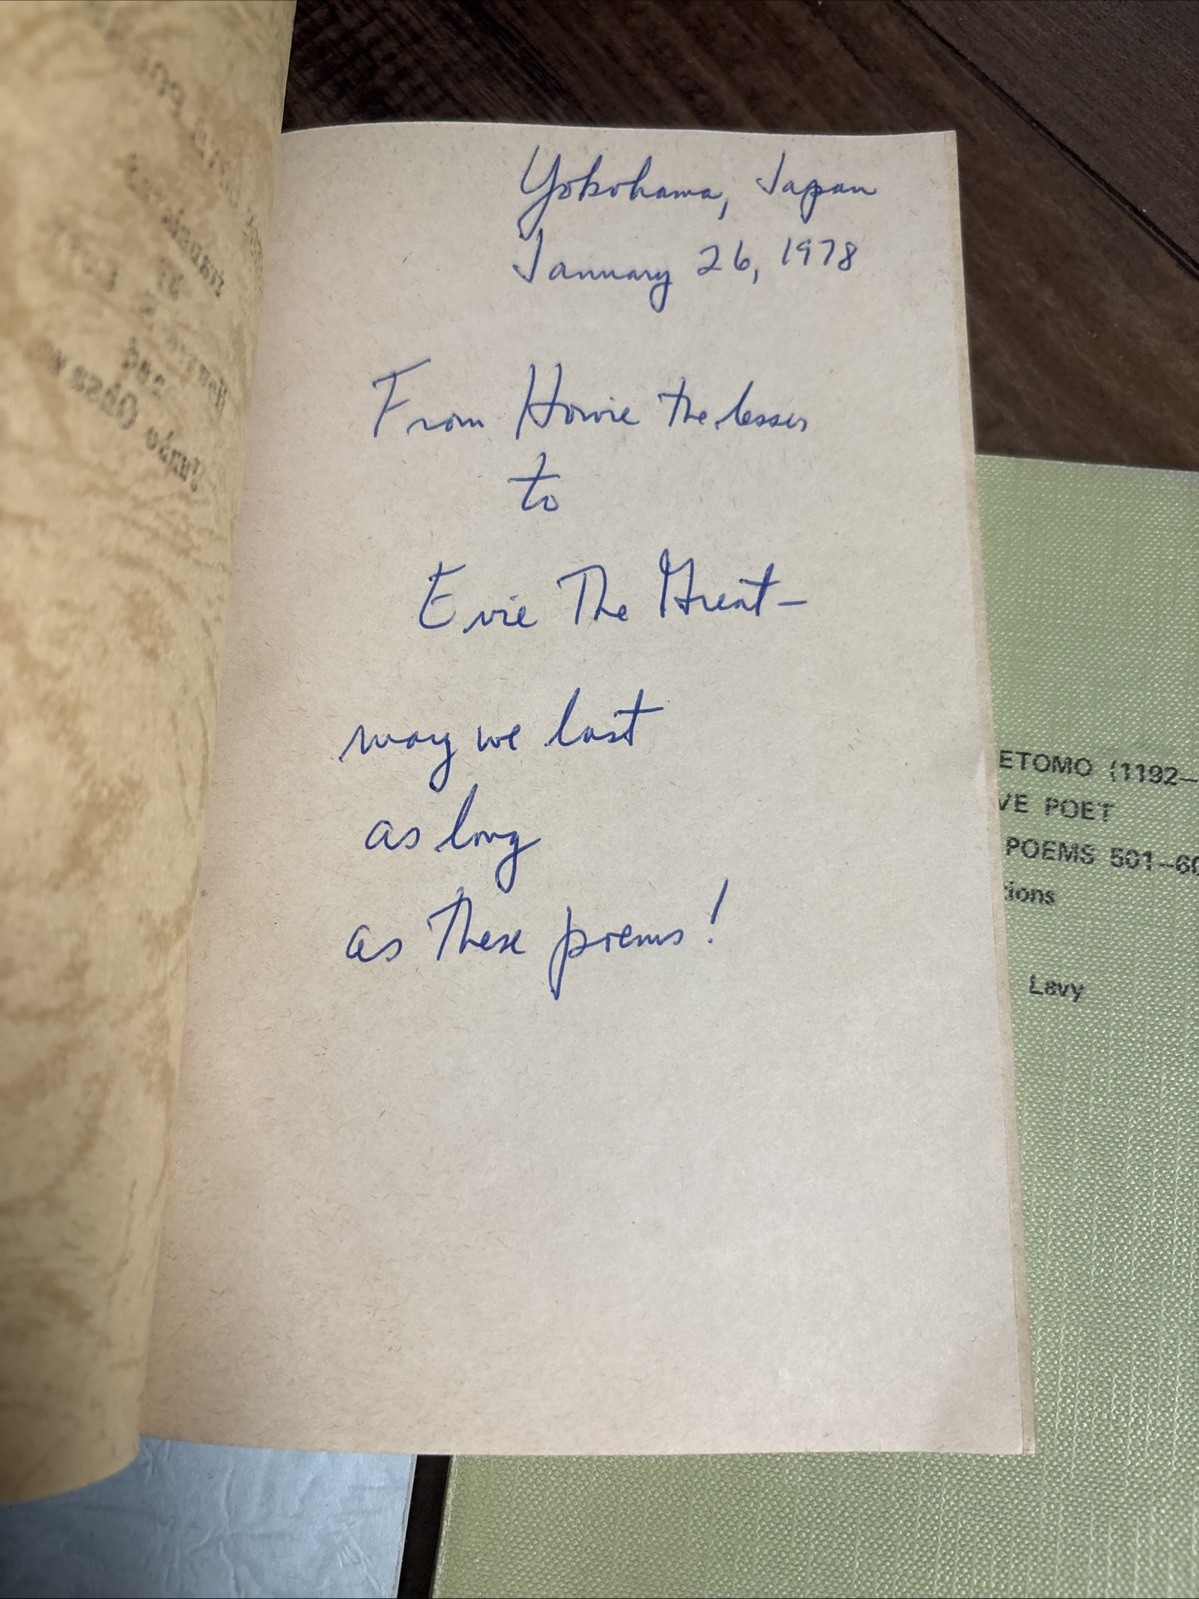 Yokohama, Japan
January 26, 1978
From Howie the lesser
to
Evie The Great—
may we last
as long
as these poems!
ETOMO (1192–
VE POET
POEMS 501–60
tions
Levy
and
Junzo Ohsawa